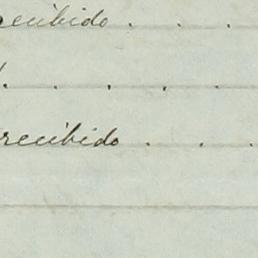 recibido . . .
. . . .
recibido . . .